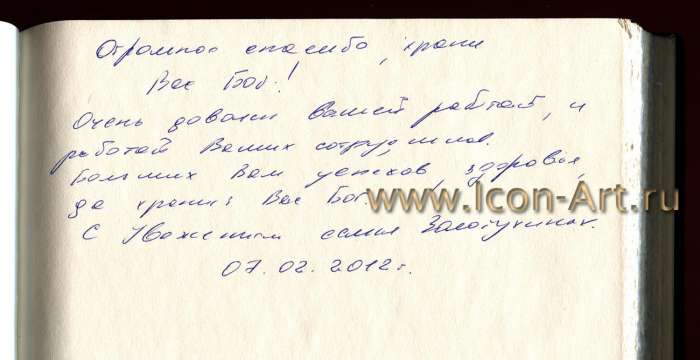 Огромное спасибо, храни
Вас Бог!
Очень доволен Вашей работой, и
работой Ваших сотрудников.
Больших Вам успехов, здоровья,
да храни Вас Бог
www.Icon-Art.ru
С Уважением семья Золотухиных.
07.02.2012г.